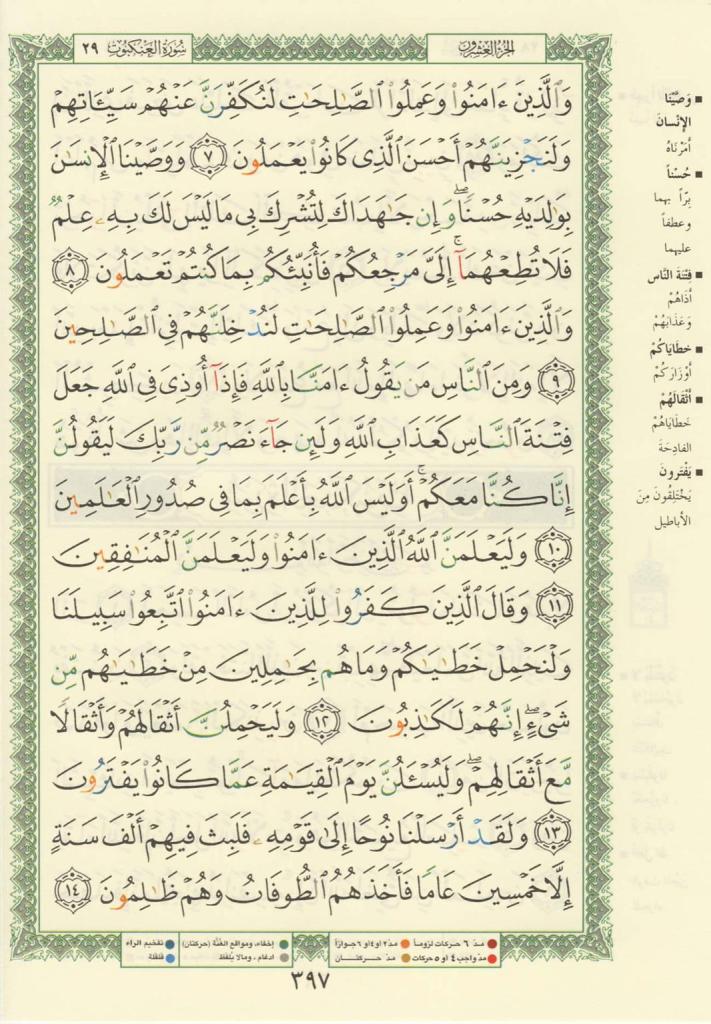 الجزء العشرون
سورة العنكبوت ٢٩
وَٱلَّذِينَ ءَامَنُوا۟ وَعَمِلُوا۟ ٱلصَّٰلِحَٰتِ لَنُكَفِّرَنَّ عَنْهُمْ سَيِّـَٔاتِهِمْ
وَلَنَجْزِيَنَّهُمْ أَحْسَنَ ٱلَّذِى كَانُوا۟ يَعْمَلُونَ ٧ وَوَصَّيْنَا ٱلْإِنسَٰنَ
بِوَٰلِدَيْهِ حُسْنًا ۖ وَإِن جَٰهَدَاكَ لِتُشْرِكَ بِى مَا لَيْسَ لَكَ بِهِۦ عِلْمٌ
فَلَا تُطِعْهُمَآ ۚ إِلَىَّ مَرْجِعُكُمْ فَأُنَبِّئُكُم بِمَا كُنتُمْ تَعْمَلُونَ ٨
وَٱلَّذِينَ ءَامَنُوا۟ وَعَمِلُوا۟ ٱلصَّٰلِحَٰتِ لَنُدْخِلَنَّهُمْ فِى ٱلصَّٰلِحِينَ
٩ وَمِنَ ٱلنَّاسِ مَن يَقُولُ ءَامَنَّا بِٱللَّهِ فَإِذَآ أُوذِىَ فِى ٱللَّهِ جَعَلَ
فِتْنَةَ ٱلنَّاسِ كَعَذَابِ ٱللَّهِ وَلَئِن جَآءَ نَصْرٌ مِّن رَّبِّكَ لَيَقُولُنَّ
إِنَّا كُنَّا مَعَكُمْ ۚ أَوَلَيْسَ ٱللَّهُ بِأَعْلَمَ بِمَا فِى صُدُورِ ٱلْعَٰلَمِينَ
١٠ وَلَيَعْلَمَنَّ ٱللَّهُ ٱلَّذِينَ ءَامَنُوا۟ وَلَيَعْلَمَنَّ ٱلْمُنَٰفِقِينَ
١١ وَقَالَ ٱلَّذِينَ كَفَرُوا۟ لِلَّذِينَ ءَامَنُوا۟ ٱتَّبِعُوا۟ سَبِيلَنَا
وَلْنَحْمِلْ خَطَٰيَٰكُمْ وَمَا هُم بِحَٰمِلِينَ مِنْ خَطَٰيَٰهُم مِّن
شَىْءٍ ۖ إِنَّهُمْ لَكَٰذِبُونَ ١٢ وَلَيَحْمِلُنَّ أَثْقَالَهُمْ وَأَثْقَالًا
مَّعَ أَثْقَالِهِمْ ۖ وَلَيُسْـَٔلُنَّ يَوْمَ ٱلْقِيَٰمَةِ عَمَّا كَانُوا۟ يَفْتَرُونَ
١٣ وَلَقَدْ أَرْسَلْنَا نُوحًا إِلَىٰ قَوْمِهِۦ فَلَبِثَ فِيهِمْ أَلْفَ سَنَةٍ
إِلَّا خَمْسِينَ عَامًا فَأَخَذَهُمُ ٱلطُّوفَانُ وَهُمْ ظَٰلِمُونَ ١٤
■ وَصَّيْنَا
الإنْسَانَ
أَمَرْنَاهُ
■ حُسْناً
بِرّاً بهما
وعطفاً
عليهما
■ فِتْنَةَ النَّاس
أذَاهُمْ
وَعَذَابَهُمْ
■ خطَايَاكُمْ
أوْزَارَكُمْ
■ أثْقَالَهُمْ
خَطَايَاهُمْ
الفادِحَةَ
■ يَفْتَرونَ
يَخْتَلِقُونَ مِنَ
الأباطيل
مدّ ٦ حركات لزوماً مدّ٢ او٤ او ٦ جوازاً
مدّ واجب ٤ او ٥ حركات مدّ حركتان
إخفاء، ومواقع الغُنَّة (حركتان) تفخيم الراء
ادغام ، ومالا يُلفظ قلقلة
٣٩٧